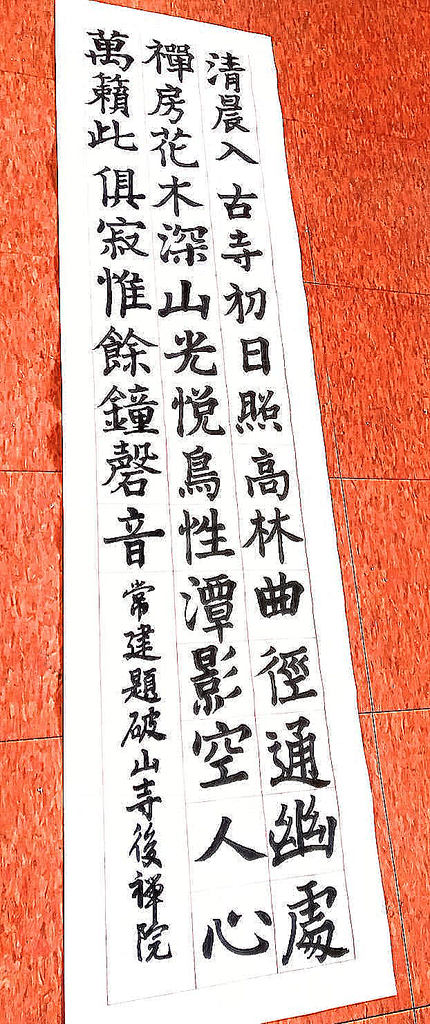 清晨入古寺初日照高林曲徑通幽處
禪房花木深山光悅鳥性潭影空人心
萬籟此俱寂惟餘鐘磬音
常建題破山寺後禪院